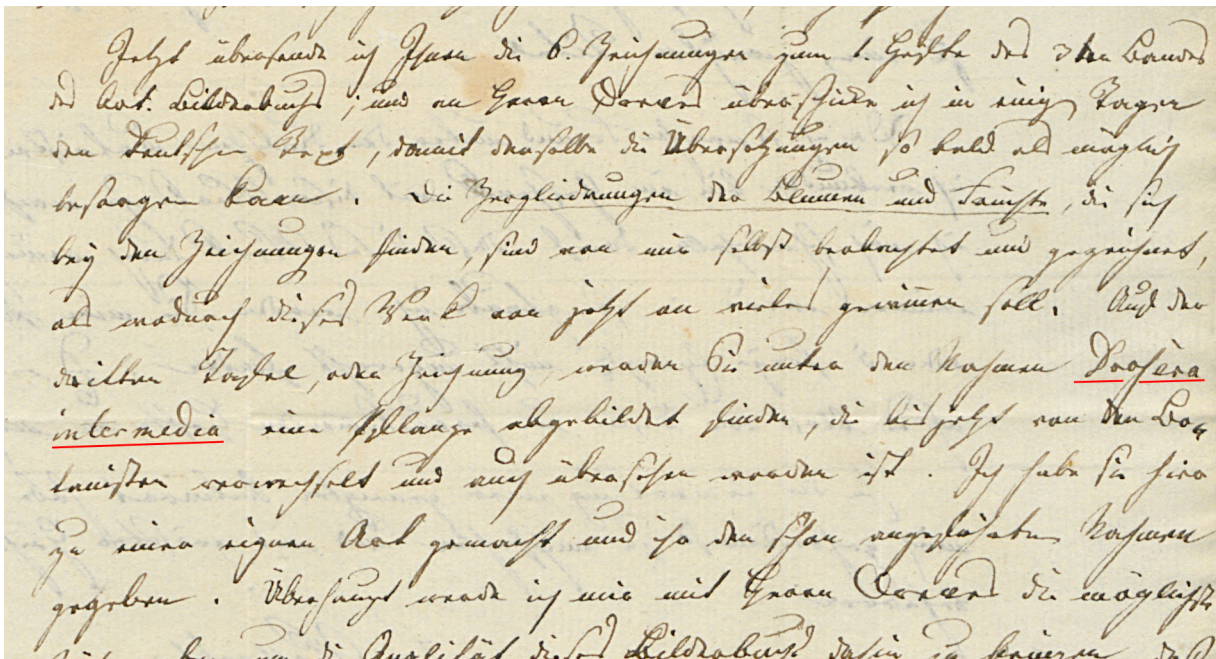 Jetzt übersende ich Ihnen die 6. Zeichnungen zum 1. Hefte des 3ten Bandes
des bot. Bilderbuchs; und an Herrn Dreves überschicke ich in einig Tagen
den deutschen Text, damit derselbe die Übersetzungen so bald als möglich
besorgen kann. Die Zergliedrungen der Blumen und Früchte, die sich
bey den Zeichnungen finden sind von mir selbst beobachtet und gezeichnet,
als wodurch dieses Werk von jetzt an vieles gewinnen soll. Auf der
dritten Tafel, oder Zeichnung, werden Sie unter den Nahmen Drosera
intermedia eine Pflanze abgebildet finden, die bis jetzt von den Bo-
tanisten verwechselt und auch übersehen worden ist. Ich habe sie hier
zu einer eignen Art gemacht und ihr den schon angeführten Nahmen
gegeben. Überhaupt werde ich mir mit Herrn Dreves die möglichste
um die Qualität dieses Bilderbuchs dahin zu bringen, daß